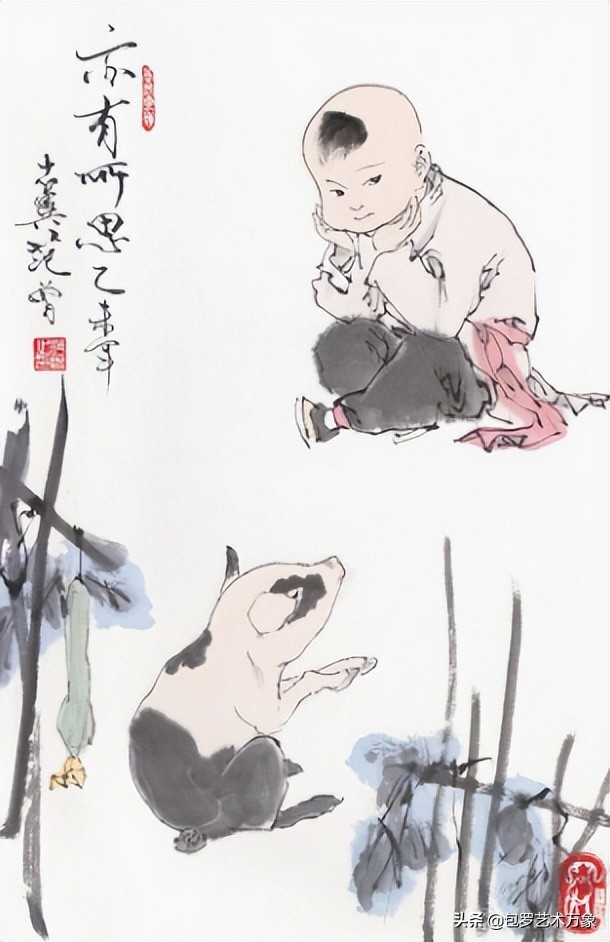 亦有所思乙未年
十翼范曾
头条 @包罗艺术万象